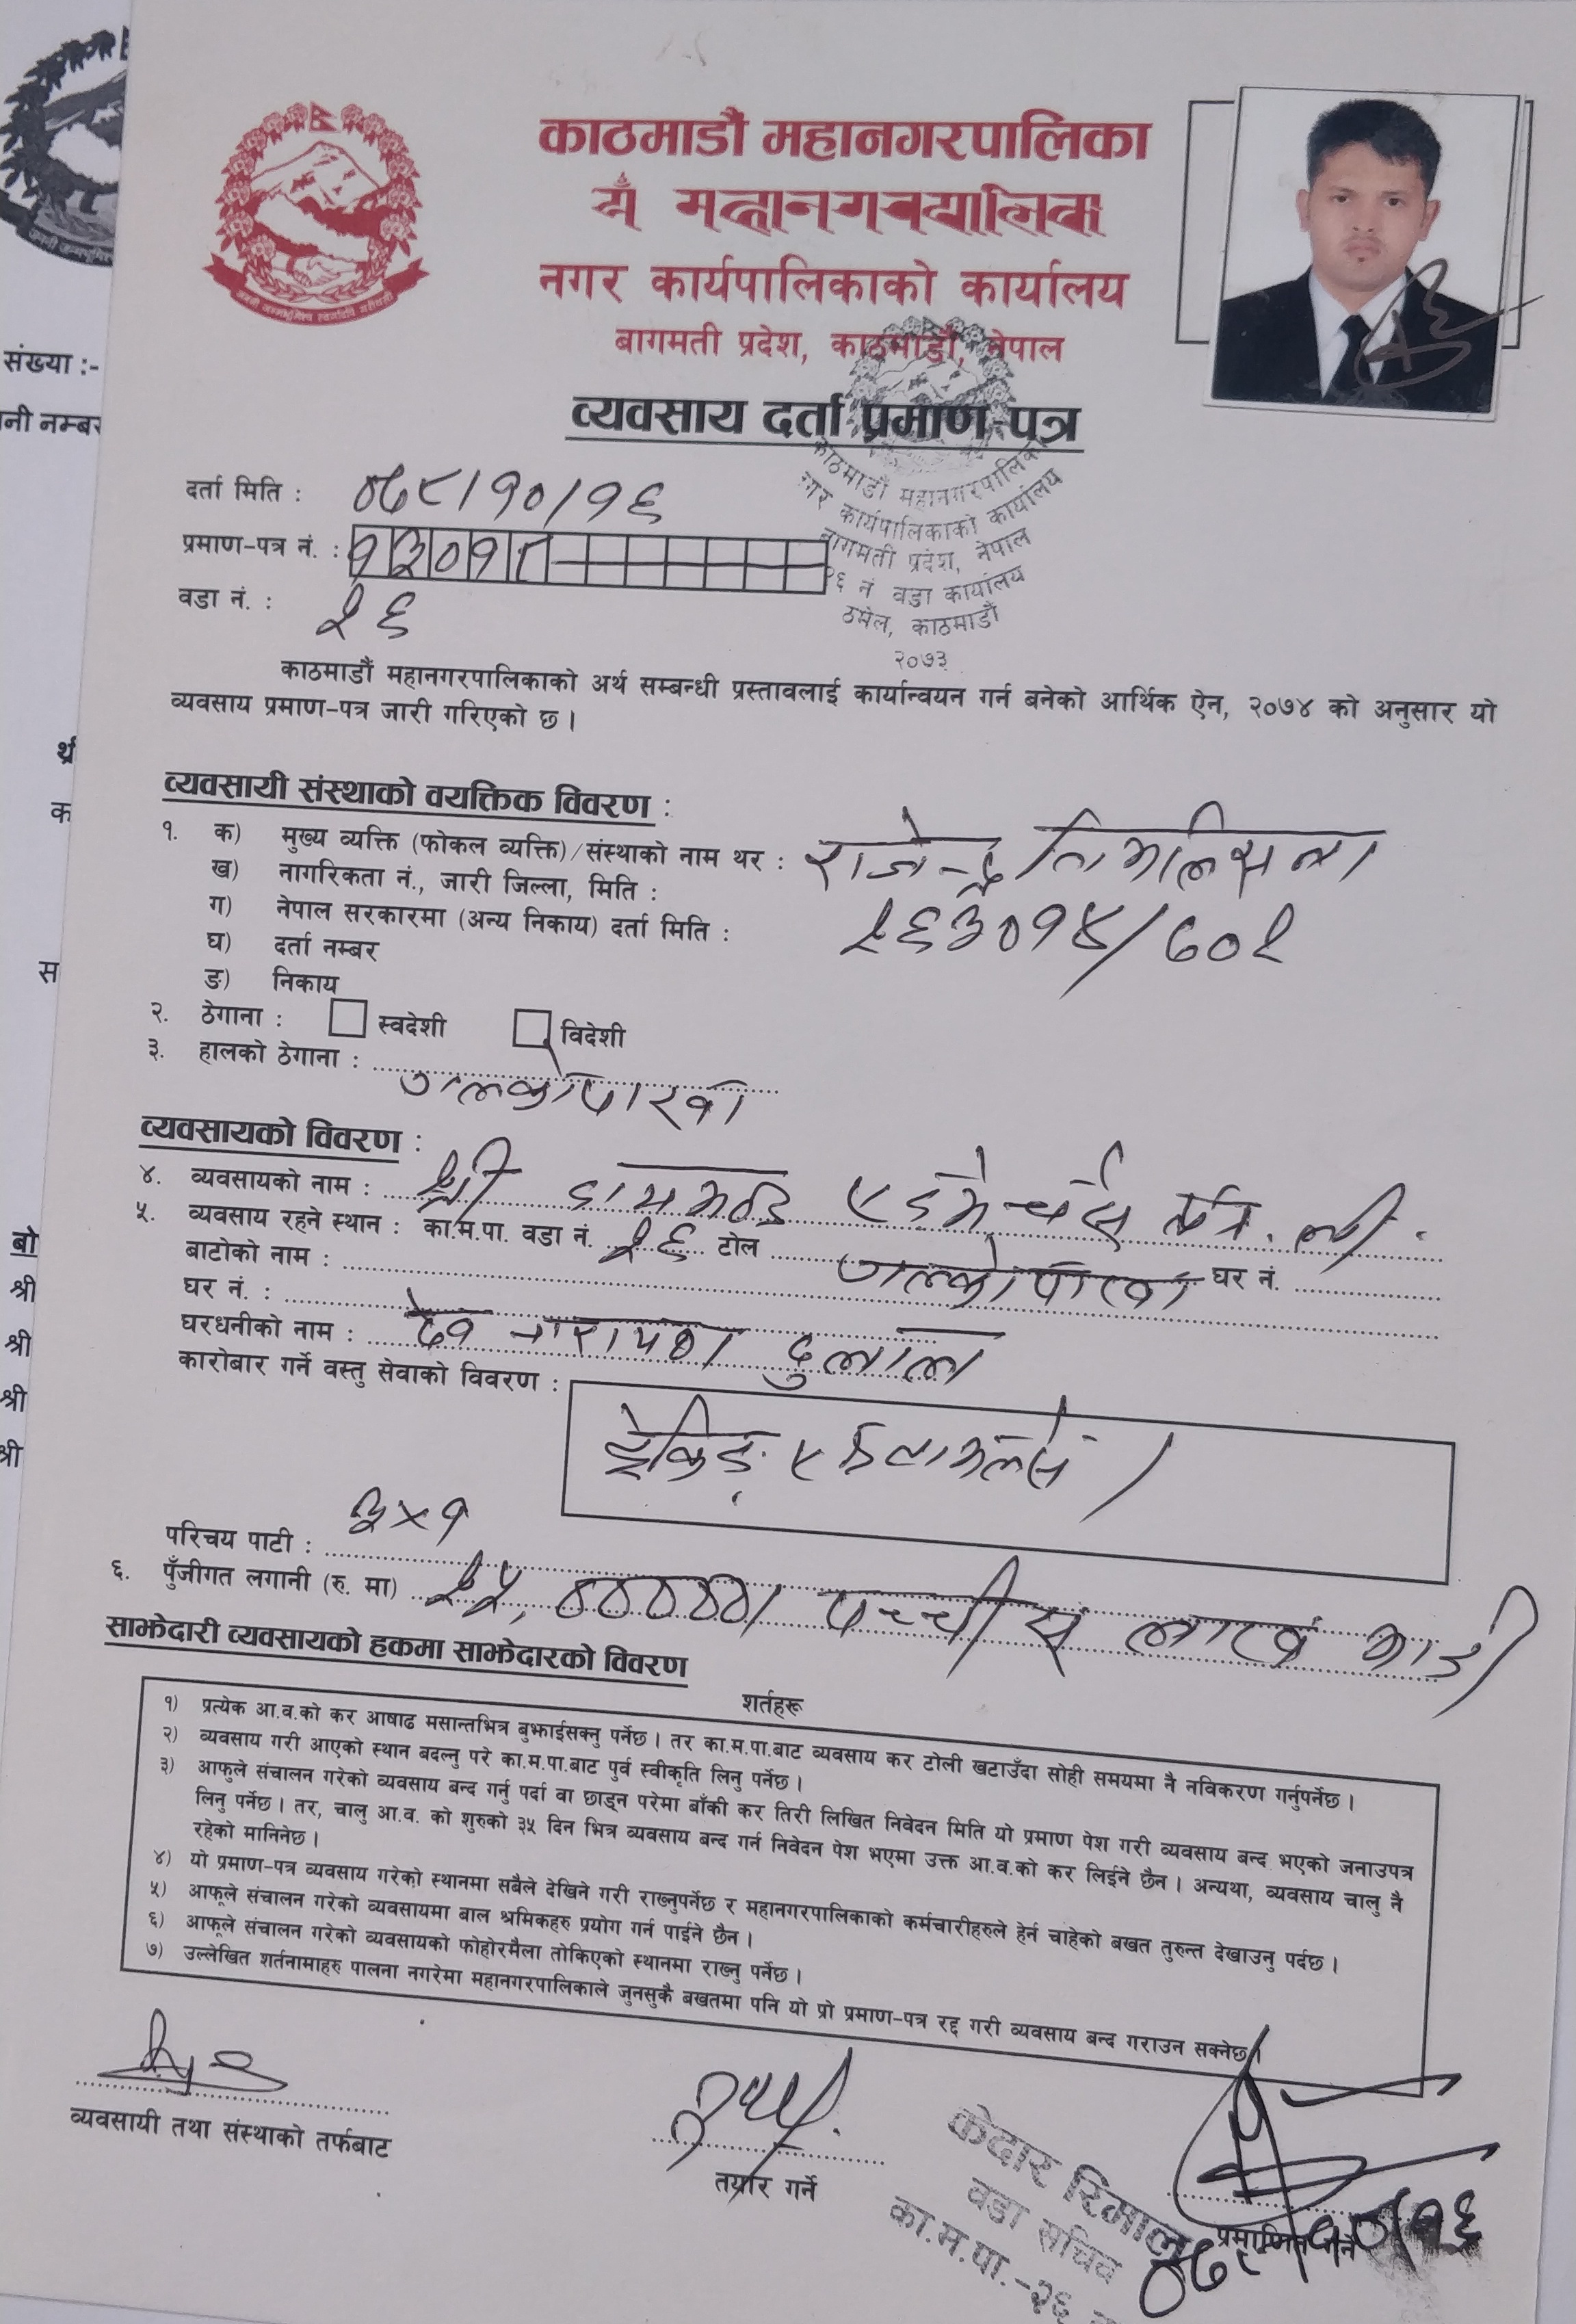 संख्या :-
नी नम्बर
काठमाडौं महानगरपालिका
नगर कार्यपालिकाको कार्यालय
बागमती प्रदेश, काठमाडौं, नेपाल
व्यवसाय दर्ता प्रमाण-पत्र
काठमाडौं महानगरपालिका
नगर कार्यपालिकाको कार्यालय
बागमती प्रदेश, नेपाल
२६ नं वडा कार्यालय
ठमेल, काठमाडौं
२०७३
दर्ता मिति : ०७८/१०/१६
प्रमाण-पत्र नं. : १३०१८
वडा नं. : २६
काठमाडौं महानगरपालिकाको अर्थ सम्बन्धी प्रस्तावलाई कार्यान्वयन गर्न बनेको आर्थिक ऐन, २०७४ को अनुसार यो
व्यवसाय प्रमाण-पत्र जारी गरिएको छ ।
व्यवसायी संस्थाको वयक्तिक विवरण :
१. क) मुख्य व्यक्ति (फोकल व्यक्ति)/संस्थाको नाम थर : राजेन्द्र तिमल्सिना
ख) नागरिकता नं., जारी जिल्ला, मिति :
ग) नेपाल सरकारमा (अन्य निकाय) दर्ता मिति : २६३०१४/७०२
घ) दर्ता नम्बर
ङ) निकाय
२. ठेगाना : स्वदेशी विदेशी
३. हालको ठेगाना : गल्कोपाखा
व्यवसायको विवरण :
४. व्यवसायको नाम : श्री डायमण्ड एडभेन्चर्स प्रा. ली.
५. व्यवसाय रहने स्थान : का.म.पा. वडा नं. २६ टोल गल्कोपाखा घर नं.
बाटोको नाम :
घर नं. :
घरधनीको नाम : देव नारायण दुलाल
कारोबार गर्ने वस्तु सेवाको विवरण :
ट्रेकिङ्ग
परिचय पाटी : ३×१
६. पुँजीगत लगानी (रु. मा) २५,०००००। पच्चीस लाख
साझेदारी व्यवसायको हकमा साझेदारको विवरण
शर्तहरू
१) प्रत्येक आ.व.को कर आषाढ मसान्तभित्र बुझाईसक्नु पर्नेछ । तर का.म.पा.बाट व्यवसाय कर टोली खटाउँदा सोही समयमा नै नविकरण गर्नुपर्नेछ ।
२) व्यवसाय गरी आएको स्थान बदल्नु परे का.म.पा.बाट पुर्व स्वीकृति लिनु पर्नेछ ।
३) आफुले संचालन गरेको व्यवसाय बन्द गर्नु पर्दा वा छाड्न परेमा बाँकी कर तिरी लिखित निवेदन मिति यो प्रमाण पेश गरी व्यवसाय बन्द भएको जनाउपत्र
लिनु पर्नेछ । तर, चालु आ.व. को शुरुको ३५ दिन भित्र व्यवसाय बन्द गर्न निवेदन पेश भएमा उक्त आ.व.को कर लिईने छैन । अन्यथा, व्यवसाय चालु नै
रहेको मानिनेछ ।
४) यो प्रमाण-पत्र व्यवसाय गरेको स्थानमा सबैले देखिने गरी राख्नुपर्नेछ र महानगरपालिकाको कर्मचारीहरुले हेर्न चाहेको बखत तुरुन्त देखाउनु पर्दछ ।
५) आफूले संचालन गरेको व्यवसायमा बाल श्रमिकहरु प्रयोग गर्न पाईने छैन ।
६) आफूले संचालन गरेको व्यवसायको फोहोरमैला तोकिएको स्थानमा राख्नु पर्नेछ ।
७) उल्लेखित शर्तनामाहरु पालना नगरेमा महानगरपालिकाले जुनसुकै बखतमा पनि यो प्रो प्रमाण-पत्र रद्द गरी व्यवसाय बन्द गराउन सक्नेछ ।
व्यवसायी तथा संस्थाको तर्फबाट
तयार गर्ने
प्रमाणित गर्ने
केदार रिमाल
वडा सचिव
का.म.पा.-२६
०७८/१०/१६